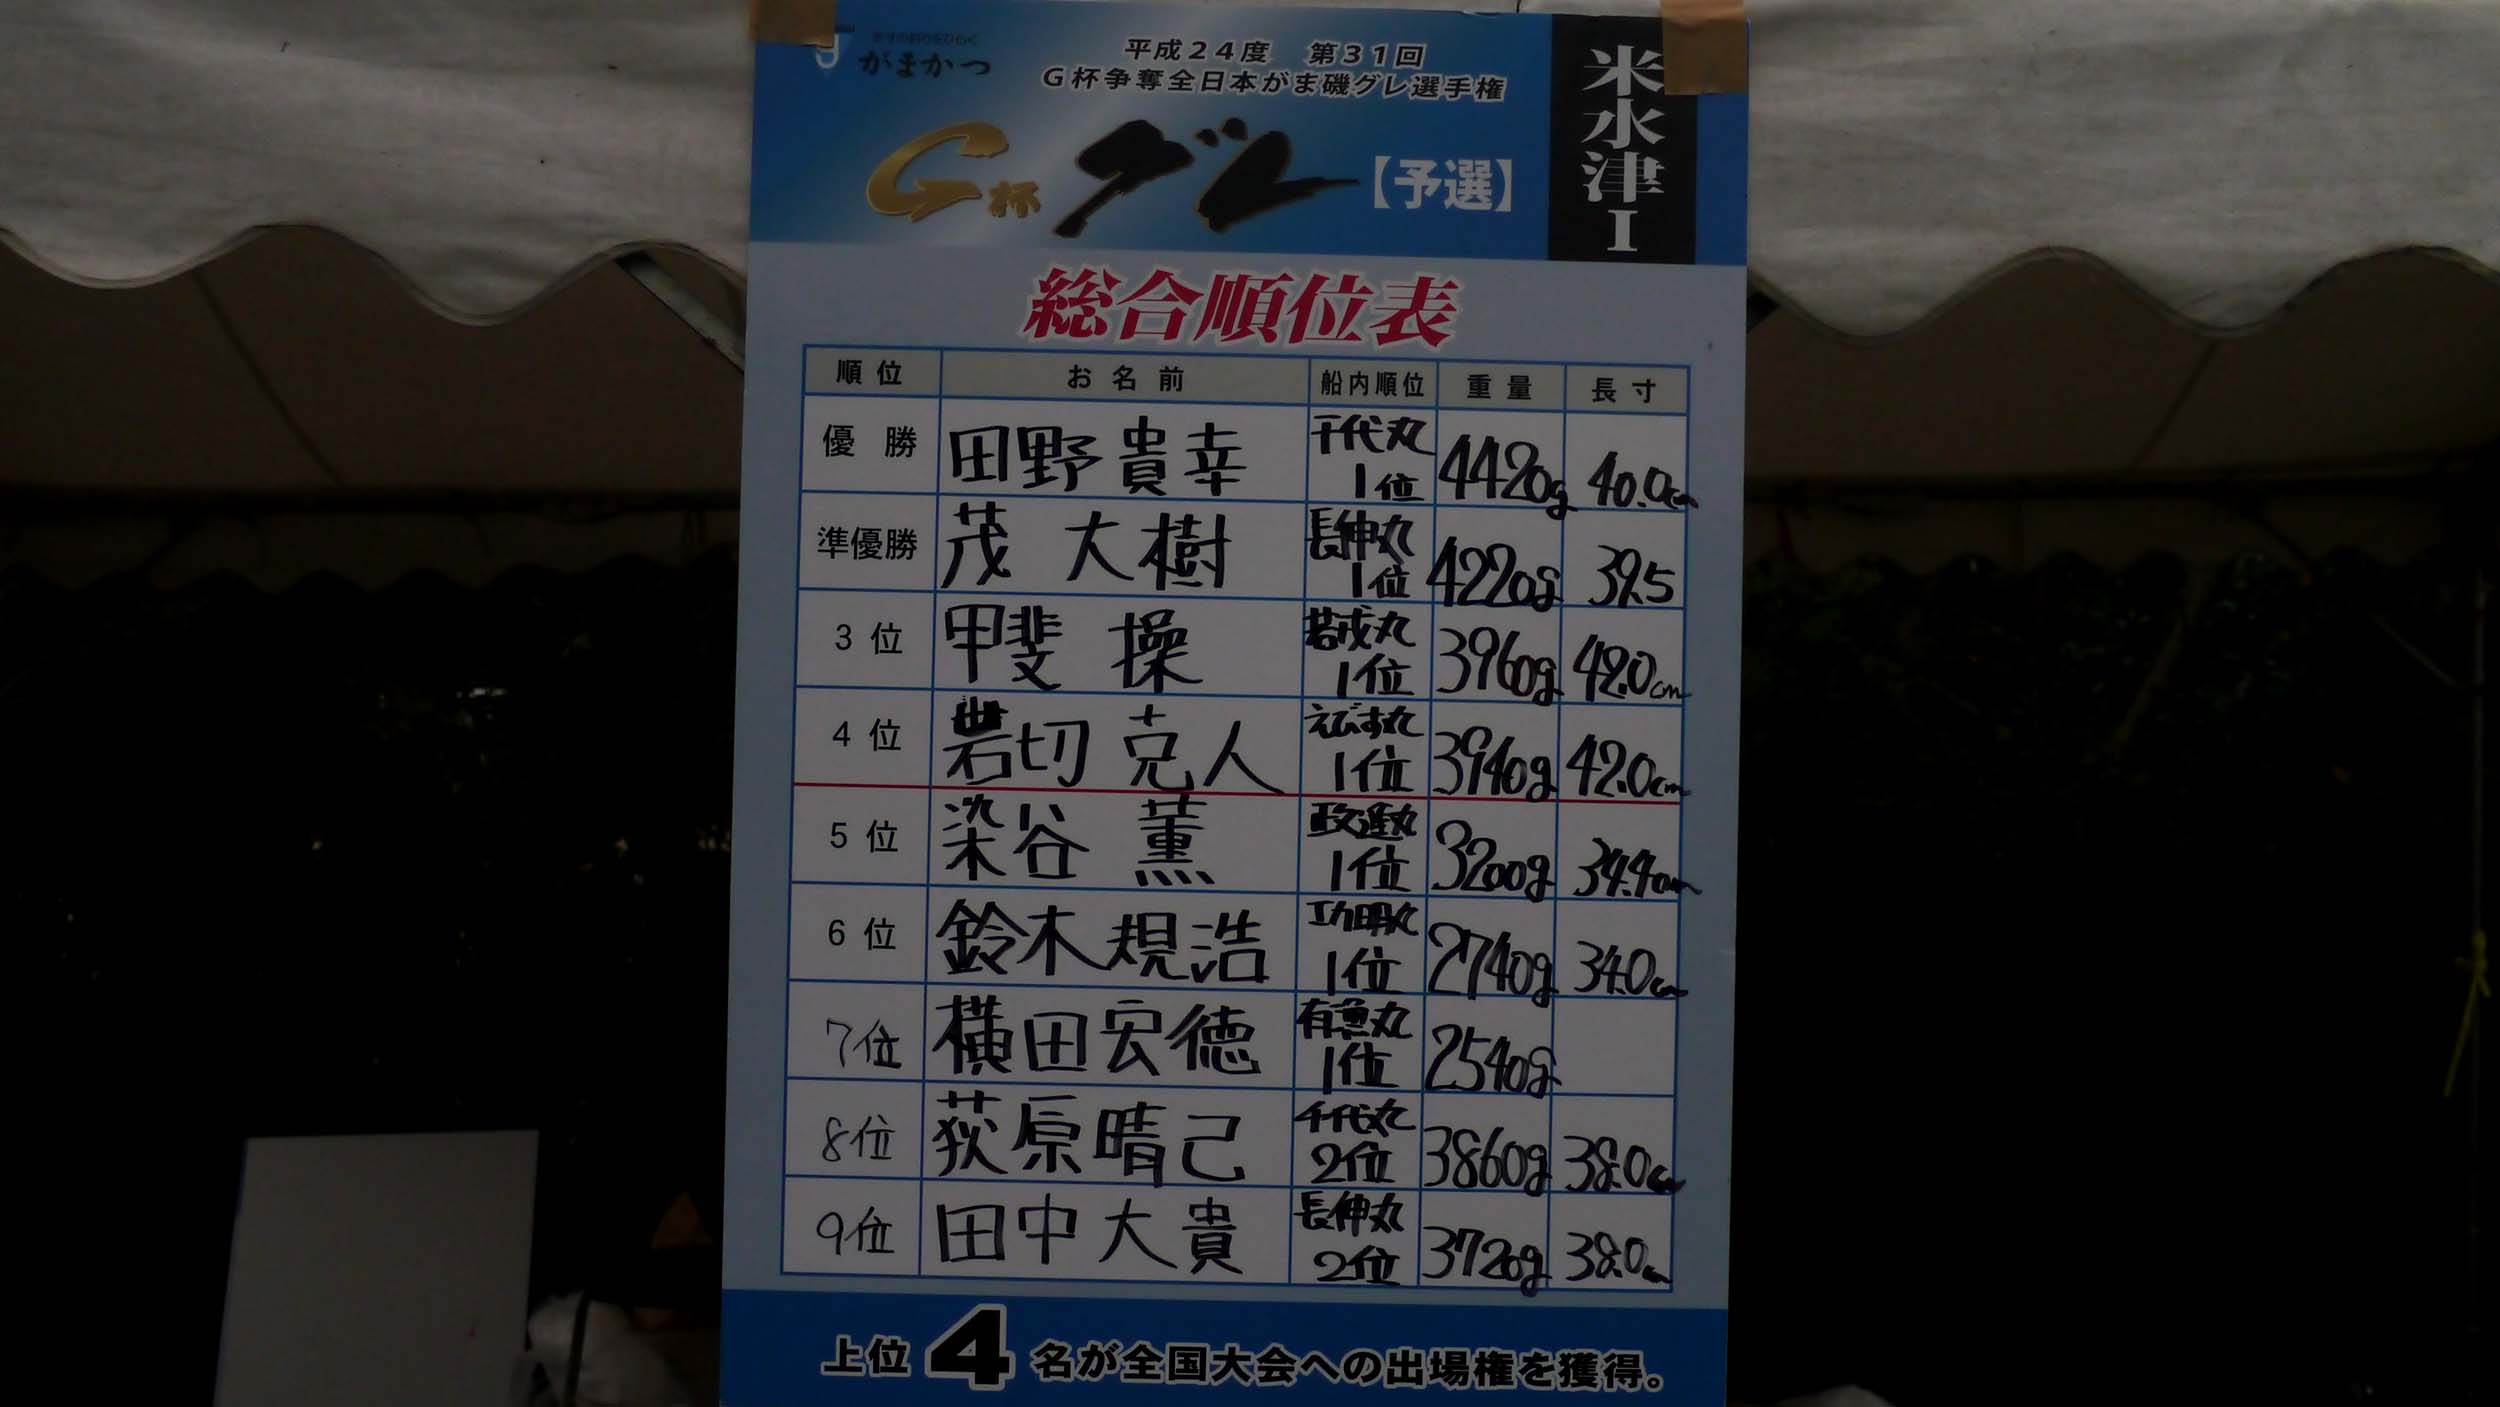 がまかつ
平成24度 第31回
G杯争奪全日本がま磯グレ選手権
G杯グレ【予選】
米水津I
総合順位表
順位 お名前 船内順位 重量 長寸
優勝 田野貴幸 千代丸 1位 4420g 40.0cm
準優勝 茂 大樹 長伸丸 1位 4220g 39.5
3位 甲斐 操 若戎丸 1位 3960g 42.0cm
4位 岩切 克人 えびす丸 1位 3940g 42.0cm
5位 染谷 薫 政進丸 1位 3200g 34.4cm
6位 鈴木規浩 功明丸 1位 2740g 34.0cm
7位 横田宏徳 有漁丸 1位 2540g
8位 荻原晴己 千代丸 2位 3860g 38.0cm
9位 田中大貴 長伸丸 2位 3720g 38.0cm
上位4名が全国大会への出場権を獲得。